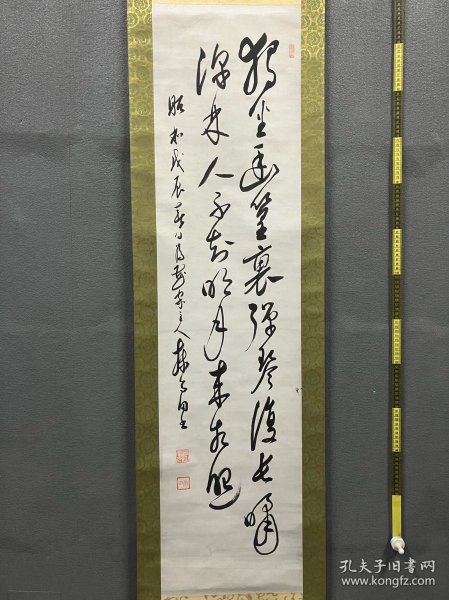 獨坐幽篁裏彈琴復長嘯
深林人不知明月來相照
昭和戊辰春日為
主人
孔夫子旧书网
www.kongfz.com